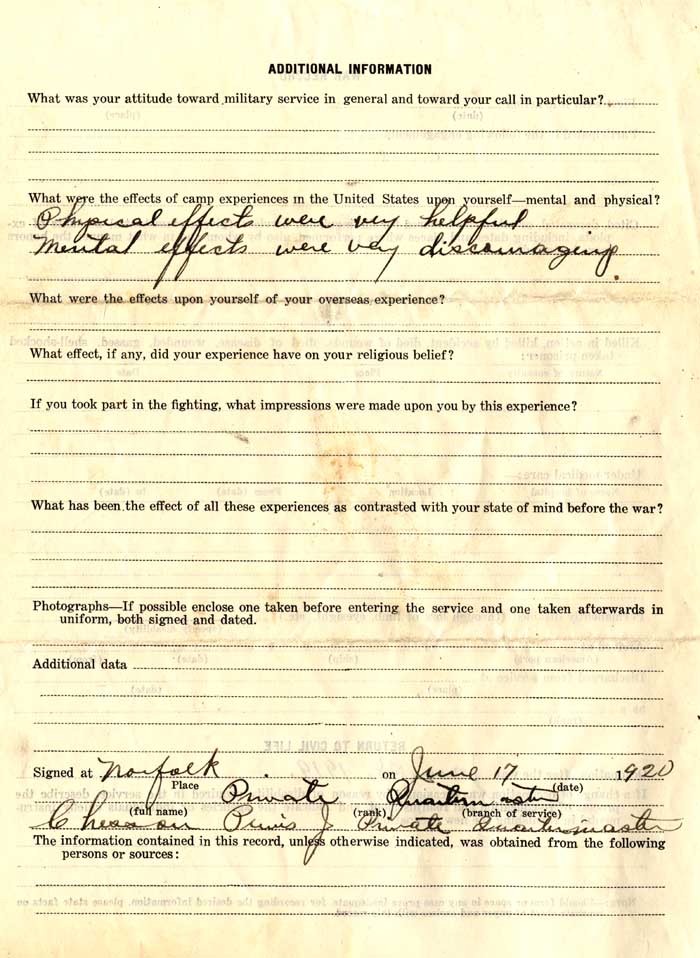 ADDITIONAL INFORMATION
What was your attitude toward military service in general and toward your call in particular?
What were the effects of camp experiences in the United States upon yourself—mental and physical?
Physical effects were very helpful
Mental effects were very discouraging.
What were the effects upon yourself of your overseas experience?
What effect, if any, did your experience have on your religious belief?
If you took part in the fighting, what impressions were made upon you by this experience?
What has been the effect of all these experiences as contrasted with your state of mind before the war?
Photographs—If possible enclose one taken before entering the service and one taken afterwards in
uniform, both signed and dated.
Additional data
Signed at Norfolk. on June 17 1920
Place (date)
Private Quartermaster
(full name) (rank) (branch of service)
Chesson Purvis J Private Quartermaster
The information contained in this record, unless otherwise indicated, was obtained from the following
persons or sources: